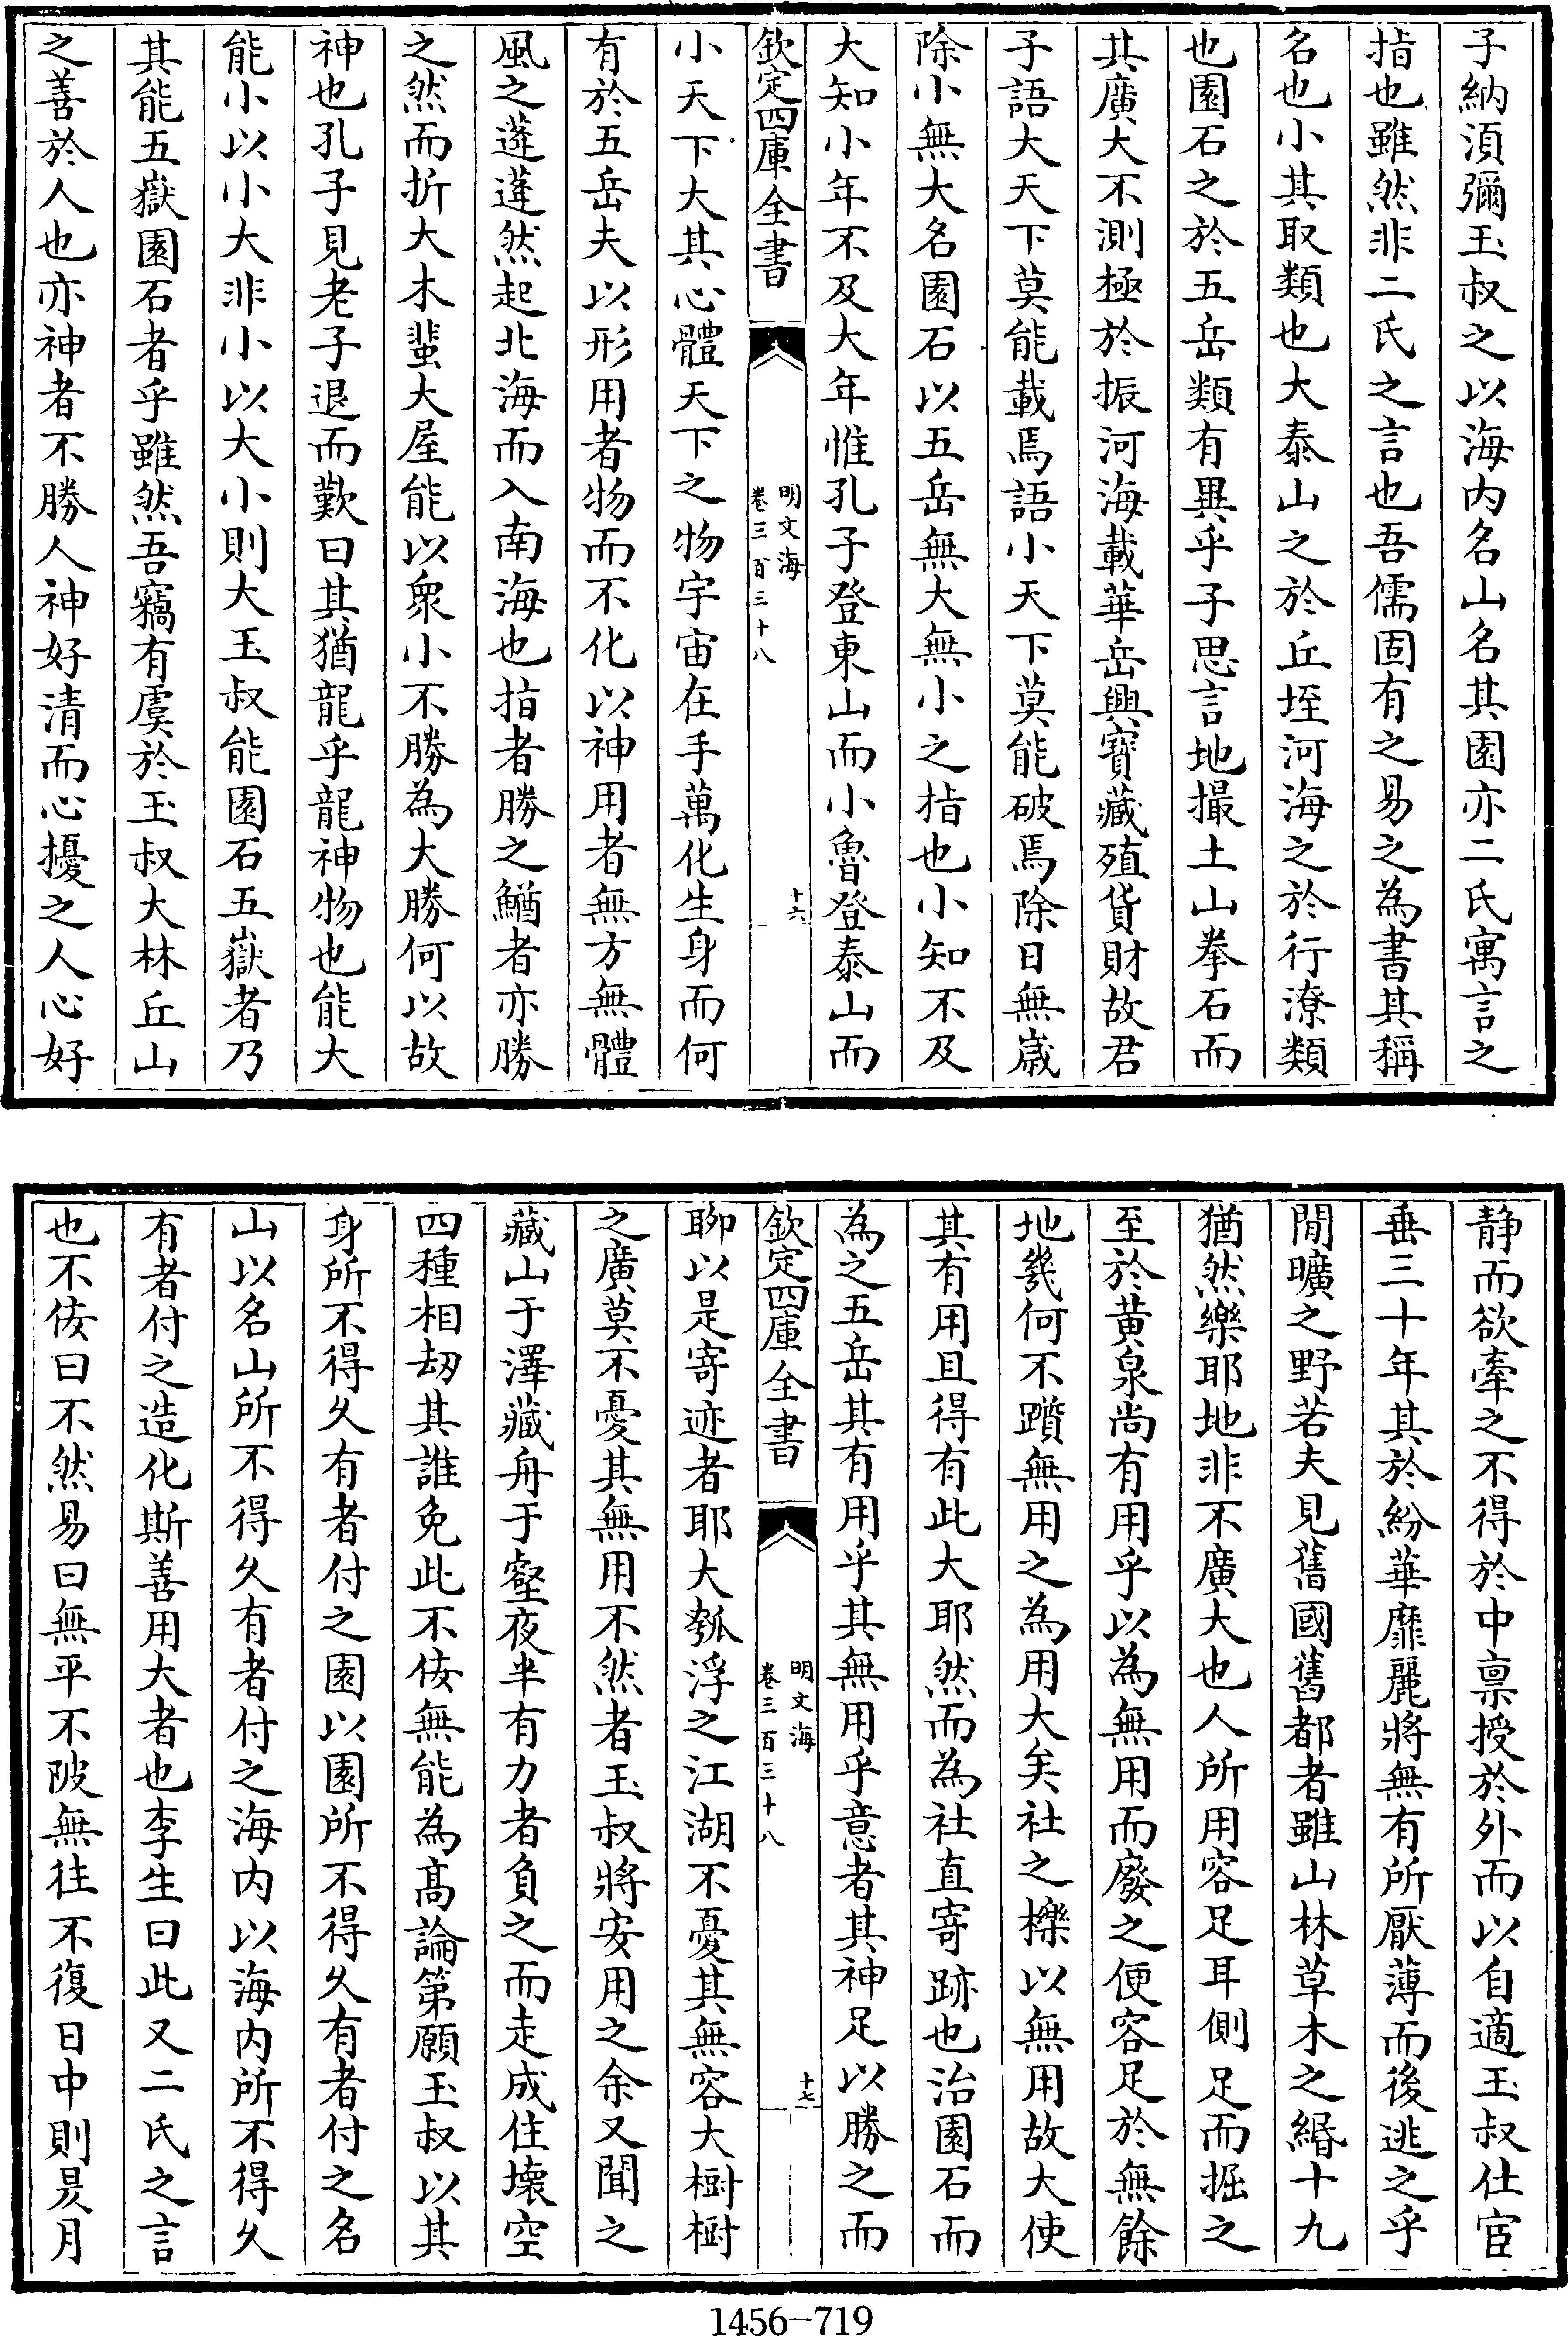 子納須彌玉叔之以海内名山名其園亦二氏寓言之
指也雖然非二氏之言也吾儒固有之易之為書其稱
名也小其取類也大泰山之於丘垤河海之於行潦類
也園石之於五岳類有異乎子思言地撮土山拳石而
其廣大不測極於振河海載華岳興寶藏殖貨財故君
子語大天下莫能載焉語小天下莫能破焉除日無歳
除小無大名園石以五岳無大無小之指也小知不及
大知小年不及大年惟孔子登東山而小魯登泰山而
欽定四庫全書
明文海
卷三百三十八
十六
小天下大其心體天下之物宇宙在手萬化生身而何
有於五岳夫以形用者物而不化以神用者無方無體
風之蓬蓬然起北海而入南海也指者勝之鰌者亦勝
之然而折大木蜚大屋能以衆小不勝為大勝何以故
神也孔子見老子退而歎曰其猶龍乎龍神物也能大
能小以小大非小以大小則大玉叔能園石五嶽者乃
其能五嶽園石者乎雖然吾竊有虞於玉叔大林丘山
之善於人也亦神者不勝人神好清而心擾之人心好
静而欲牽之不得於中禀授於外而以自適玉叔仕宦
垂三十年其於紛華靡麗將無有所厭薄而後逃之乎
閒曠之野若夫見舊國舊都者雖山林草木之緡十九
猶然樂耶地非不廣大也人所用容足耳側足而掘之
至於黄泉尚有用乎以為無用而廢之便容足於無餘
地幾何不躓無用之為用大矣社之櫟以無用故大使
其有用且得有此大耶然而為社直寄跡也治園石而
為之五岳其有用乎其無用乎意者其神足以勝之而
欽定四庫全書
明文海
卷三百三十八
十七
聊以是寄迹者耶大瓠浮之江湖不憂其無容大樹樹
之廣莫不憂其無用不然者玉叔將安用之余又聞之
藏山于澤藏舟于壑夜半有力者負之而走成住壞空
四種相刧其誰免此不佞無能為高論第願玉叔以其
身所不得久有者付之園以園所不得久有者付之名
山以名山所不得久有者付之海内以海内所不得久
有者付之造化斯善用大者也李生曰此又二氏之言
也不佞曰不然易曰無平不陂無往不復日中則昃月
1456-719